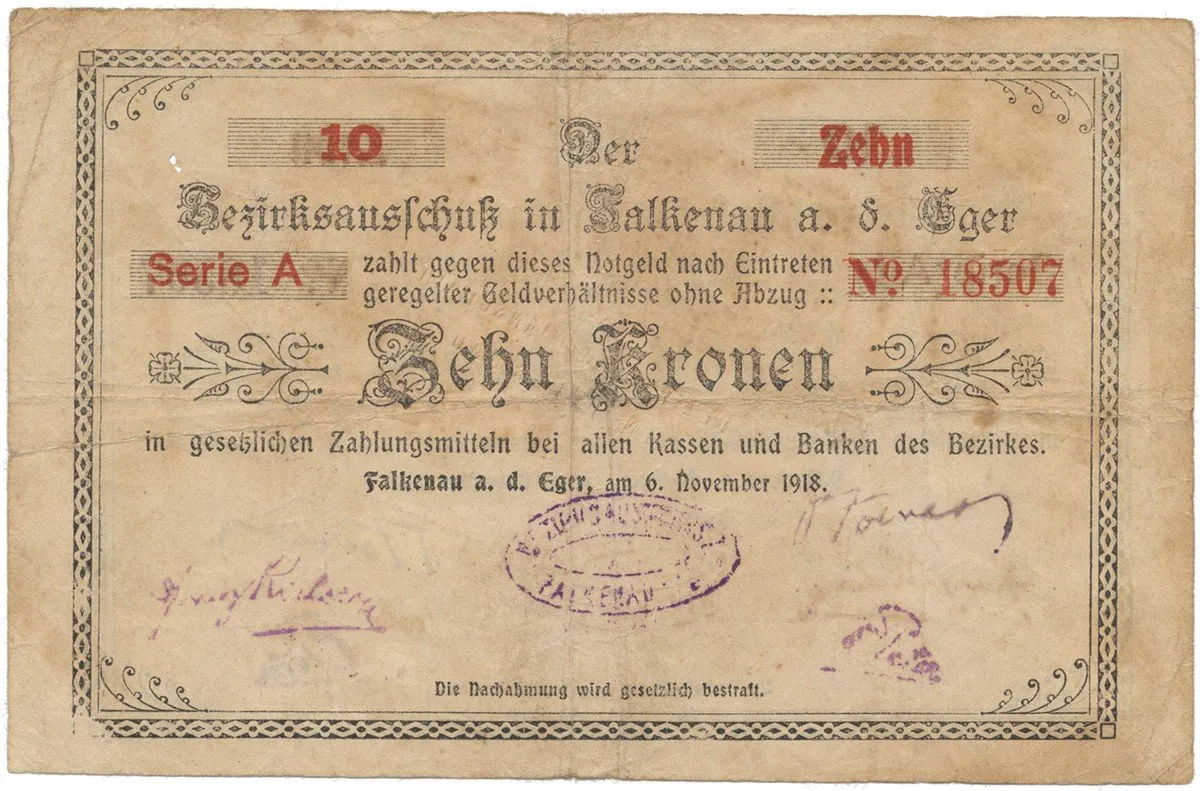 10 Der Zehn
Bezirksausschuß in Falkenau a. d. Eger
Serie A
zahlt gegen dieses Notgeld nach Eintreten
geregelter Geldverhältnisse ohne Abzug ::
No. 18507
Zehn Kronen
in gesetzlichen Zahlungsmitteln bei allen Kassen und Banken des Bezirkes.
Falkenau a. d. Eger, am 6. November 1918.
BEZIRKSAUSSCHUSS
FALKENAU
Die Nachahmung wird gesetzlich bestraft.